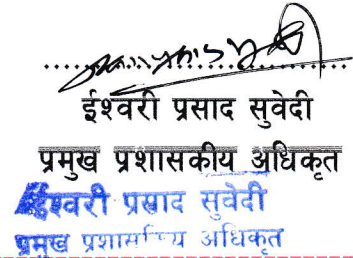 ईश्वरी प्रसाद सुवेदी
प्रमुख प्रशासकीय अधिकृत
ईश्वरी प्रसाद सुवेदी
प्रमुख प्रशासकीय अधिकृत